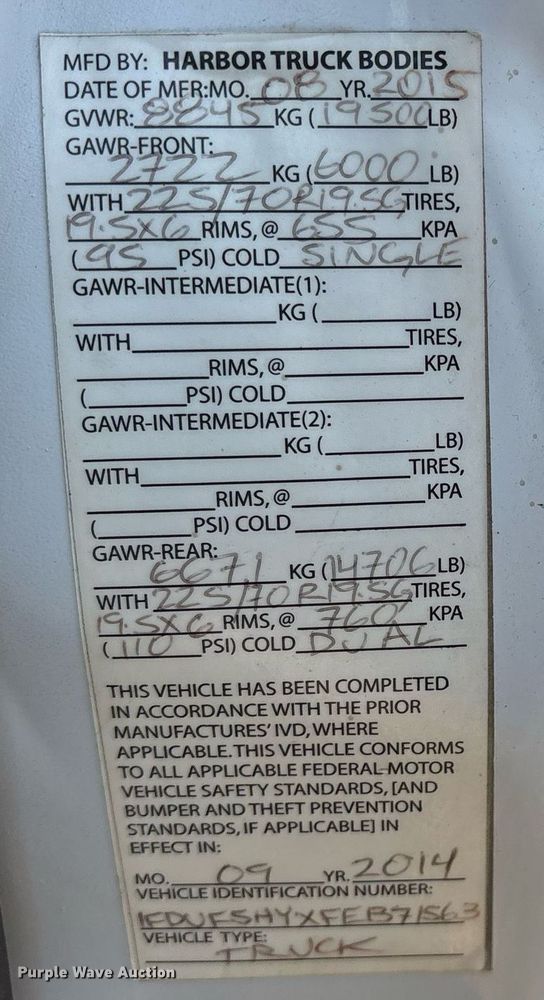 MFD BY: HARBOR TRUCK BODIES
DATE OF MFR:MO. 08 YR. 2015
GVWR: 8845 KG (19500 LB)
GAWR-FRONT:
2722 KG (6000 LB)
WITH 225/70R19.5G TIRES,
19.5X6 RIMS, @ 655 KPA
(95 PSI) COLD SINGLE
GAWR-INTERMEDIATE(1):
KG ( LB)
WITH TIRES,
RIMS, @ KPA
( PSI) COLD
GAWR-INTERMEDIATE(2):
KG ( LB)
WITH TIRES,
RIMS, @ KPA
( PSI) COLD
GAWR-REAR:
6671 KG (14706 LB)
WITH 225/70R19.5G TIRES,
19.5X6 RIMS, @ 760 KPA
(110 PSI) COLD DUAL
THIS VEHICLE HAS BEEN COMPLETED
IN ACCORDANCE WITH THE PRIOR
MANUFACTURES' IVD, WHERE
APPLICABLE. THIS VEHICLE CONFORMS
TO ALL APPLICABLE FEDERAL MOTOR
VEHICLE SAFETY STANDARDS, [AND
BUMPER AND THEFT PREVENTION
STANDARDS, IF APPLICABLE] IN
EFFECT IN:
MO. 09 YR. 2014
VEHICLE IDENTIFICATION NUMBER:
1FDUF5HYXFEB71563
VEHICLE TYPE:
TRUCK
Purple Wave Auction